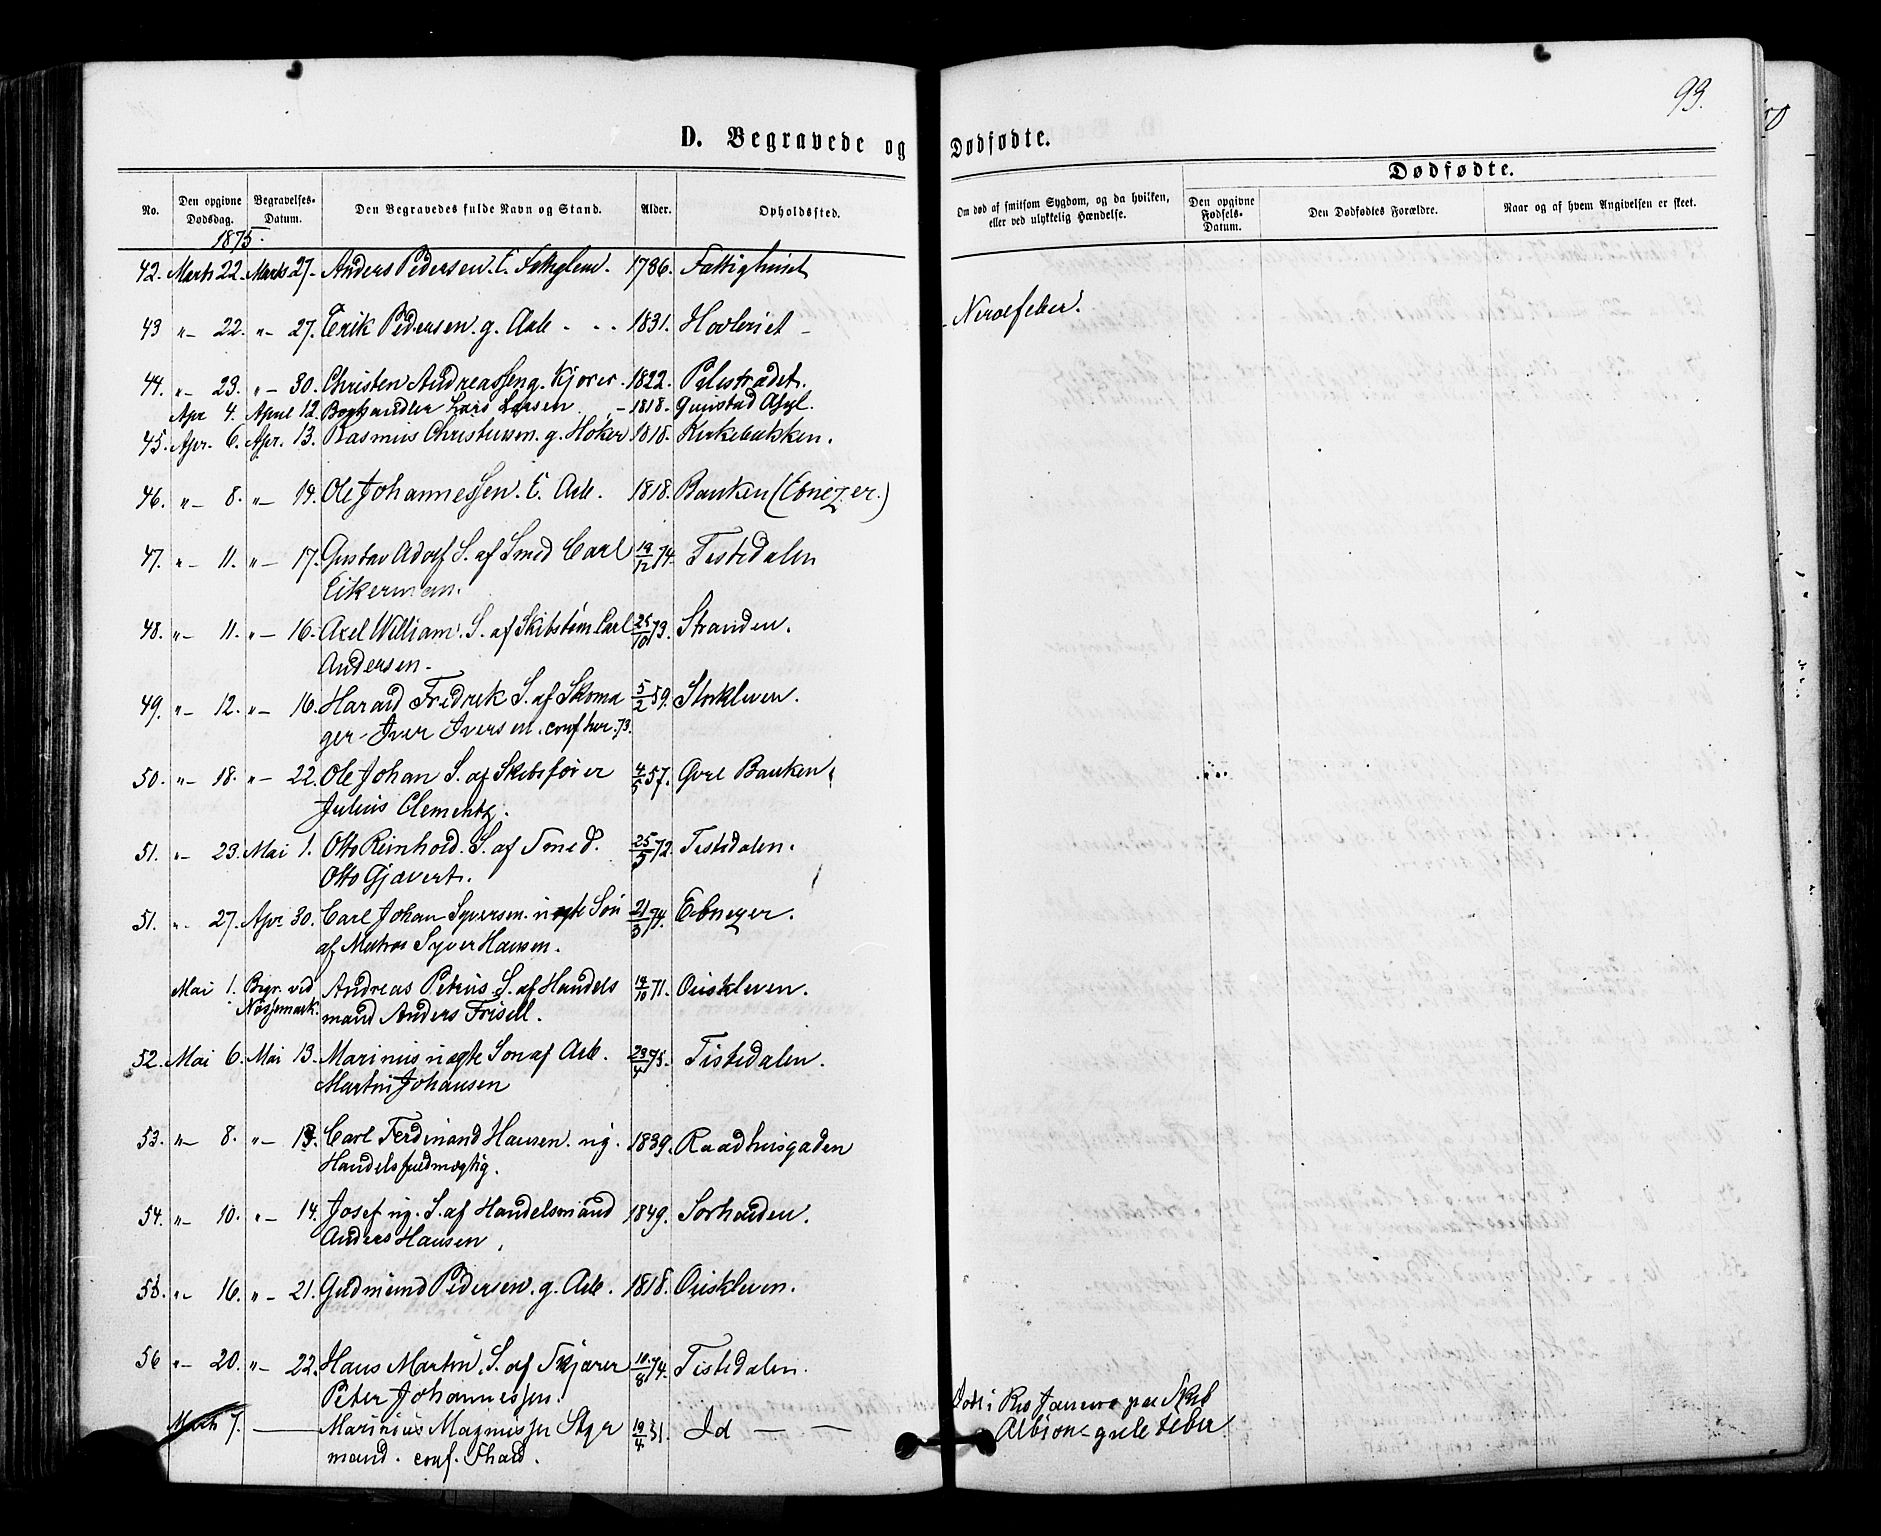 93.
D. Begravede og Dødfødte.
No.
Den opgivne Dødsdag.
Begravelses-Datum.
Den Begravedes fulde Navn og Stand.
Alder.
Opholdssted.
Om død af smitsom Sygdom, og da hvilken, eller ved ulykkelig Hændelse.
Dødfødte.
Den opgivne Fødsels-Datum.
Den Dødfødtes Forældre.
Naar og af hvem Angivelsen er skeet.
1875.
42. Marts 22. Marts 27. Anders Pedersen. E. Fattiglem. 1786. Fattighuset
43 "— 22. "— 27. Erik Pedersen. g. Arb - - - 1831. Hovleriet - Nervefeber.
44. "- 23. "— 30. Christen Andreassen g. Kjører. 1822. Pilestrædet.
Apr 4. April 12. Boghandler Lars Larsen - 1818. Asyl.
45. Apr. 6. Apr. 13. Rasmus Christensen. g. Høker 1818. Kirkebakken.
46. "— 8. "— 14. Ole Johannessen. E. Arb. 1818. Banken (Ebnezer.)
47. "- 11. "— 17. Gustav Adolf S. af Smed Carl 19/12 74. Tistedalen
Eikerman.
48. "— 11. "— 16. Axel William. S. af Skibstøm Carl 25/10 73. Stranden.
Andersen.
49. "— 12. "— 16. Harald Fredrek S. af Skoma 5/2 59. Storkleven.
ger Iver Iversen. conf her. 73.
50. "— 18. "— 22. Ole Johan S. af Skibsfører 4/5 57. Øvre Banken.
Julius Clementz.
51. "- 23. Mai 1. Otto Reinhold. S. af Smed. 25/5 72. Tistedalen.
Otto Gjævert.
51. "- 27. Apr 30. Carl Johan Syversen. uægte Søn 21/3 74. Ebnezer.
af Matros Syver Hansen.
Mai 1. Begr. ved Andreas Petrus S. af Handels 19/10 71. Ouskleven.
Nøssemark. mand Anders Frisell.
52. Mai 6. Mai 13. Marinus uægte Søn af Arb. 23/4 75. Tistedalen.
Martin Johansen
53. "— 8. "— 13. Carl Ferdinand Hansen. ug. 1839. Raadhusgaden
Handelsfuldmægtig.
54. "- 10. "- 14. Josef ug. S. af Handelsmand 1849. Sørhalden.
Anders Hansen
55. "- 16. "- 21. Gudmund Pedersen. g. Arb. 1818. Ouskleven.
56 "- 20. "- 22. Hans Martin S. af Skjærer 10/8 74. Tistedalen.
Peter Johannessen.
Marts 7. — Marinius Magnussen Styr 19/4 51. Id — — Død i Rio Janeiro paa Skib
mand. conf. Albion - gule Feber